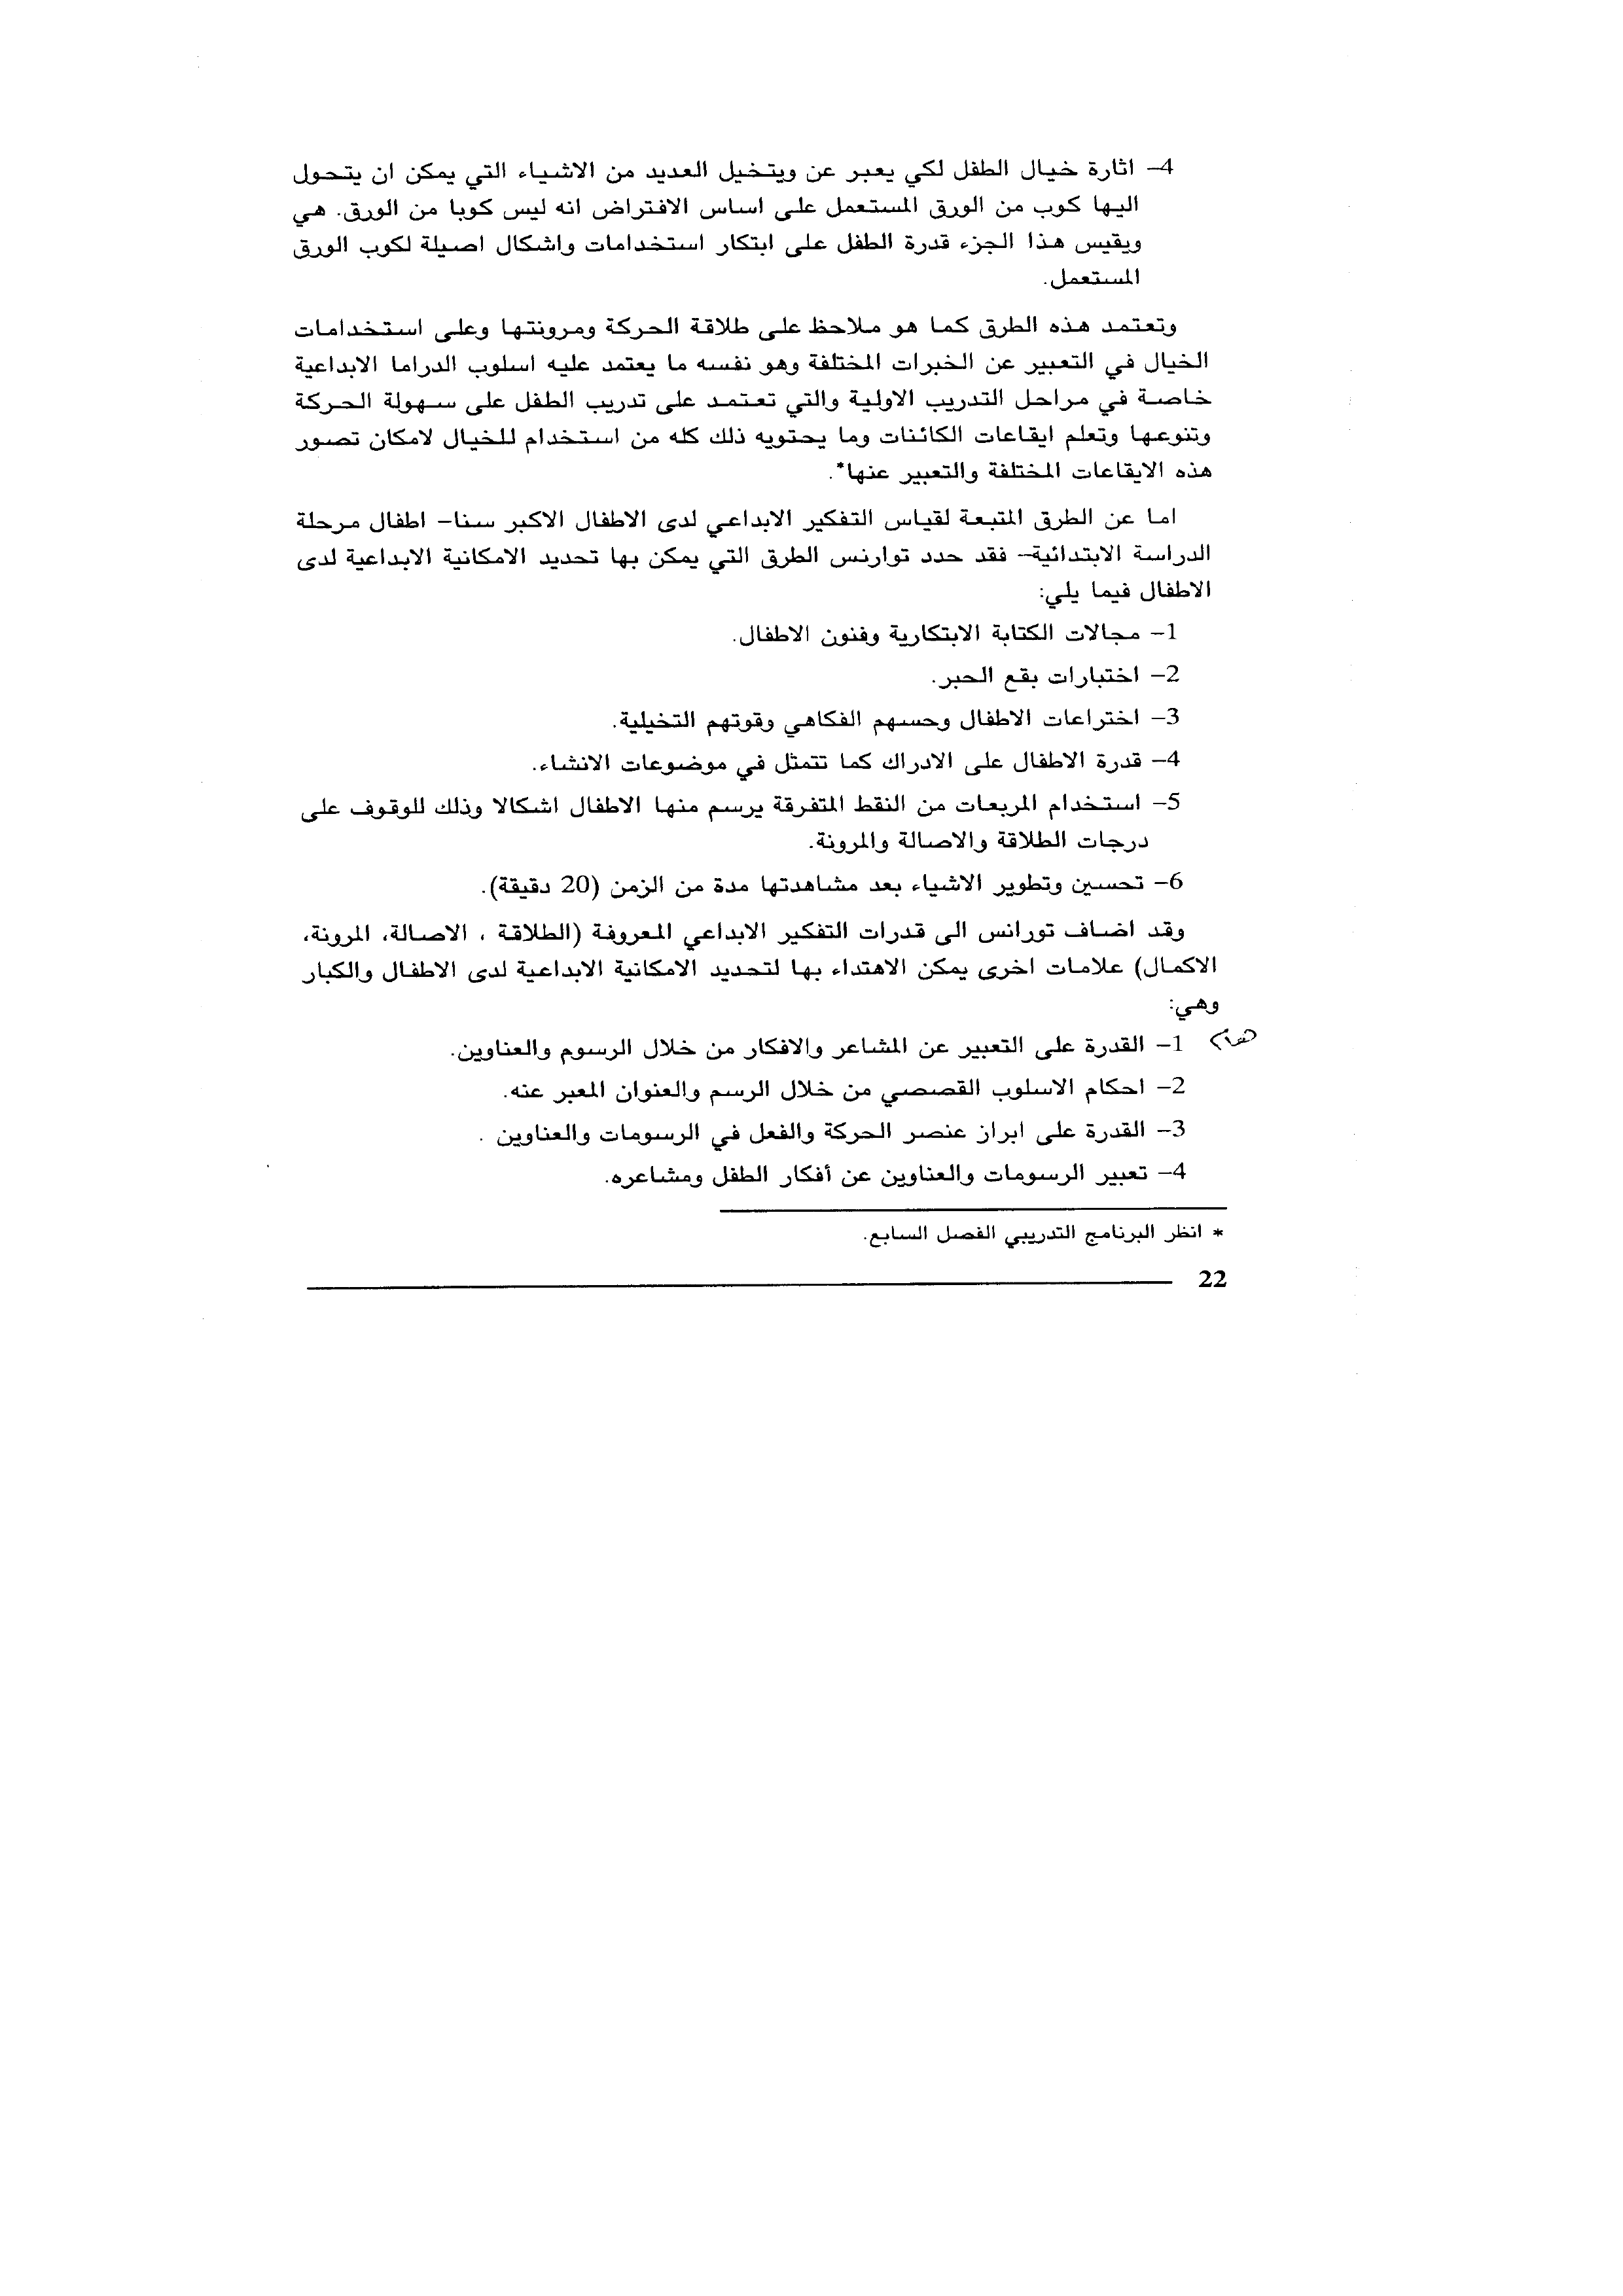 4– اثارة خيال الطفل لكي يعبر عن ويتخيل العديد من الاشياء التي يمكن ان يتحول
اليها كوب من الورق المستعمل على اساس الافتراض انه ليس كوبا من الورق. هي
ويقيس هذا الجزء قدرة الطفل على ابتكار استخدامات واشكال اصيلة لكوب الورق
المستعمل.
وتعتمد هذه الطرق كما هو ملاحظ على طلاقة الحركة ومرونتها وعلى استخدامات
الخيال في التعبير عن الخبرات المختلفة وهو نفسه ما يعتمد عليه اسلوب الدراما الابداعية
خاصة في مراحل التدريب الاولية والتي تعتمد على تدريب الطفل على سهولة الحركة
وتنوعها وتعلم ايقاعات الكائنات وما يحتويه ذلك كله من استخدام للخيال لامكان تصور
هذه الايقاعات المختلفة والتعبير عنها*.
اما عن الطرق المتبعة لقياس التفكير الابداعي لدى الاطفال الاكبر سنا– اطفال مرحلة
الدراسة الابتدائية– فقد حدد توارنس الطرق التي يمكن بها تحديد الامكانية الابداعية لدى
الاطفال فيما يلي:
1– مجالات الكتابة الابتكارية وفنون الاطفال.
2– اختبارات بقع الحبر.
3– اختراعات الاطفال وحسهم الفكاهي وقوتهم التخيلية.
4– قدرة الاطفال على الادراك كما تتمثل في موضوعات الانشاء.
5– استخدام المربعات من النقط المتفرقة يرسم منها الاطفال اشكالا وذلك للوقوف على
درجات الطلاقة والاصالة والمرونة.
6– تحسين وتطوير الاشياء بعد مشاهدتها مدة من الزمن (20 دقيقة).
وقد اضاف تورانس الى قدرات التفكير الابداعي المعروفة (الطلاقة ، الاصالة، المرونة،
الاكمال) علامات اخرى يمكن الاهتداء بها لتحديد الامكانية الابداعية لدى الاطفال والكبار
وهي:
1– القدرة على التعبير عن المشاعر والافكار من خلال الرسوم والعناوين.
2– احكام الاسلوب القصصي من خلال الرسم والعنوان المعبر عنه.
3– القدرة على ابراز عنصر الحركة والفعل في الرسومات والعناوين .
4– تعبير الرسومات والعناوين عن أفكار الطفل ومشاعره.
* انظر البرنامج التدريبي الفصل السابع.
22